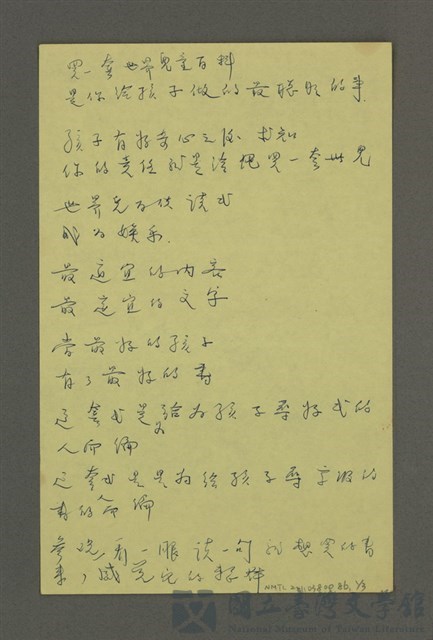 買一套世界兒童百科
是你給孩子做的最聰明的事
孩子有好奇心之後 求知
你的責任就是給他買一套世兒
世界兒百供讀
成為娛樂.
最適宜的內容
最適宜的文字
當最好的孩子
有了最好的書
這套書是給為孩子尋好書的
人而編
這套書是是為給孩子尋
的人而編
看一眼 讀一句就想買的書
國立臺灣文學館
National Museum of Taiwan Literature